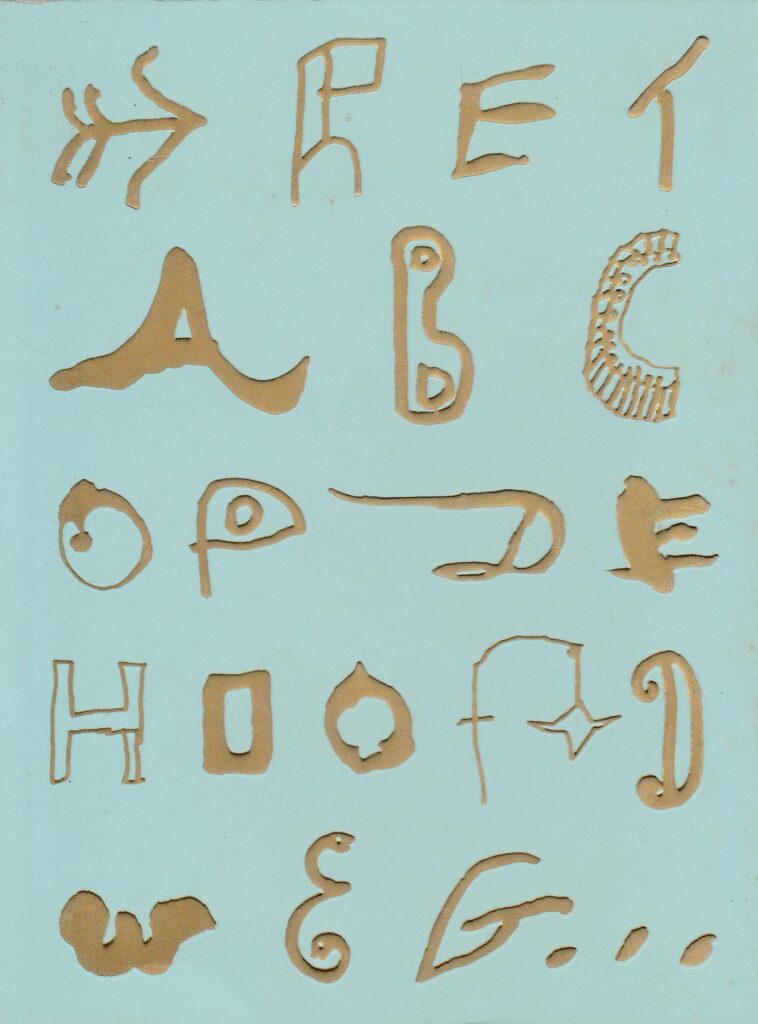 → HET
ABC
OP DE
HOOFD
WEG...